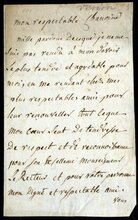 mon respectable
mille pardons de ce que je ne me
suis pas rendu à mon devoir
le plus tendre et agréable pour
moi, en me rendant chez mes
plus respectables amis pour
leur renouveller tout ce que
mon cœur sent de tendresse
de respect et de reconnoissance
pour
le Recteur et pour votre personne
mon digne et respectable ami